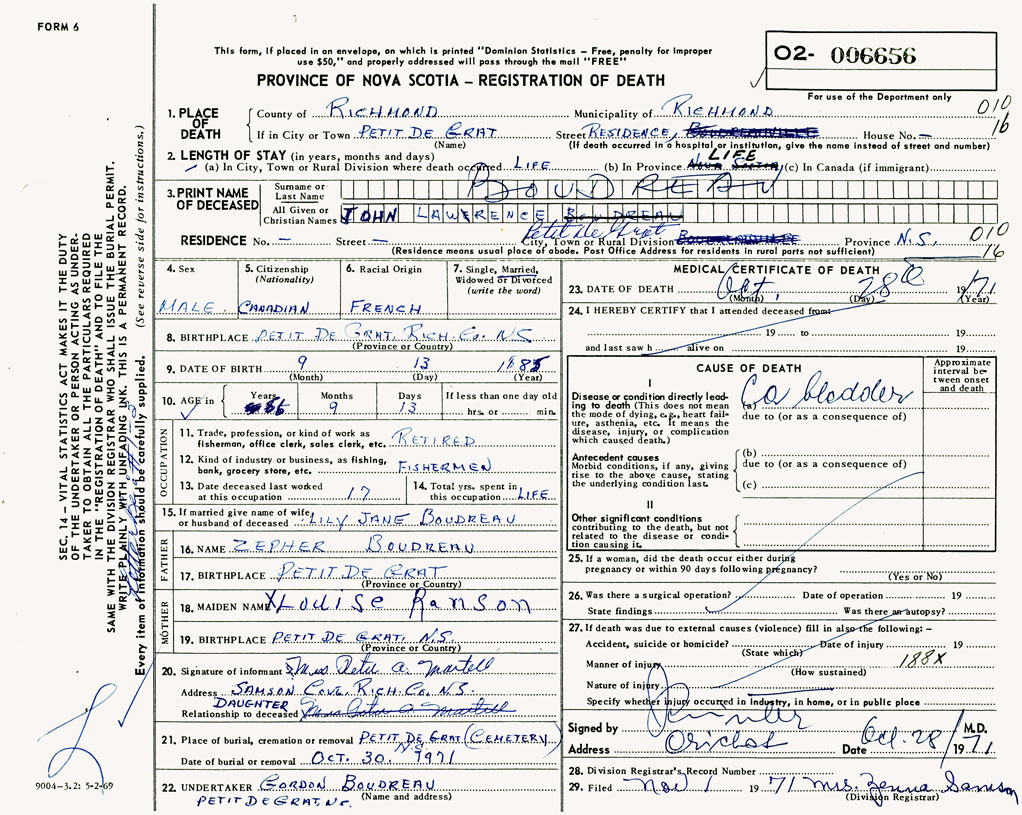 FORM 6
This form, if placed in an envelope, on which is printed "Dominion Statistics – Free, penalty for improper
use $50," and properly addressed will pass through the mail "FREE"
PROVINCE OF NOVA SCOTIA – REGISTRATION OF DEATH
O2- 006656
For use of the Department only
1. PLACE OF DEATH County of RICHMOND Municipality of RICHMOND 010
If in City or Town PETIT DE GRAT Street RESIDENCE, BOUDREAUVILLE House No. – 16
(Name) (If death occurred in a hospital or institution, give the name instead of street and number)
2. LENGTH OF STAY (in years, months and days) LIFE
(a) In City, Town or Rural Division where death occurred LIFE (b) In Province NOVA SCOTIA (c) In Canada (if immigrant)
3. PRINT NAME OF DECEASED Surname or Last Name BOUDREAU
All Given or Christian Names JOHN LAWERENCE BOUDREAU
Petit de Grat
RESIDENCE No. – Street – City, Town or Rural Division BOUDREAUVILLE Province N.S. 010
(Residence means usual place of abode. Post Office Address for residents in rural parts not sufficient) 16
4. Sex 5. Citizenship (Nationality) 6. Racial Origin 7. Single, Married, Widowed or Divorced (write the word)
MALE CANADIAN FRENCH
8. BIRTHPLACE PETIT DE GRAT, RICH. CO. N.S
(Province or Country)
9. DATE OF BIRTH 9 13 1885
(Month) (Day) (Year)
10. AGE in Years Months Days If less than one day old
86 9 13 hrs. or min.
OCCUPATION
11. Trade, profession, or kind of work as
fisherman, office clerk, sales clerk, etc. RETIRED
12. Kind of industry or business, as fishing,
bank, grocery store, etc. FISHERMEN
13. Date deceased last worked
at this occupation 17
14. Total yrs. spent in
this occupation LIFE
15. If married give name of wife
or husband of deceased LILY JANE BOUDREAU
FATHER
16. NAME ZEPHER BOUDREAU
17. BIRTHPLACE PETIT DE GRAT
(Province or Country)
MOTHER
18. MAIDEN NAME X Louise Ranson
19. BIRTHPLACE PETIT DE GRAT, N.S.
(Province or Country)
20. Signature of informant Mrs Peter A. Martell
Address SAMSON COVE, RICH. CO. N.S.
DAUGHTER
Relationship to deceased Mrs Peter A Martell
21. Place of burial, cremation or removal PETIT DE GRAT (CEMETERY)
N.S.
Date of burial or removal OCT. 30, 1971
22. UNDERTAKER GORDON BOUDREAU
PETIT DE GRAT, N.S. (Name and address)
MEDICAL CERTIFICATE OF DEATH
23. DATE OF DEATH Oct, 28 1971
(Month) (Day) (Year)
24. I HEREBY CERTIFY that I attended deceased from:
19 to 19
and last saw h alive on 19
CAUSE OF DEATH
Approximate interval between onset and death
I
Disease or condition directly leading
to death (This does not mean
the mode of dying, e.g., heart failure,
asthenia, etc. It means the
disease, injury, or complication
which caused death.)
(a) Ca bladder
due to (or as a consequence of)
Antecedent causes
Morbid conditions, if any, giving
rise to the above cause, stating
the underlying condition last.
(b)
due to (or as a consequence of)
(c)
II
Other significant conditions
contributing to the death, but not
related to the disease or condition
causing it.
25. If a woman, did the death occur either during
pregnancy or within 90 days following pregnancy?
(Yes or No)
26. Was there a surgical operation? Date of operation 19
State findings Was there an autopsy?
27. If death was due to external causes (violence) fill in also the following: –
Accident, suicide or homicide? Date of injury 19
(State which) 188X
Manner of injury
(How sustained)
Nature of injury
Specify whether injury occurred in Industry, in home, or in public place
Signed by M.D.
Address Arichat Date Oct. 28/ 1971
28. Division Registrar's Record Number
29. Filed Nov 1 1971 Mrs. Zenna Samson
(Division Registrar)
SEC. 14 – VITAL STATISTICS ACT MAKES IT THE DUTY
OF THE UNDERTAKER OR PERSON ACTING AS UNDER-
TAKER TO OBTAIN ALL THE PARTICULARS REQUIRED
IN THE "REGISTRATION OF DEATH" AND TO FILE THE
SAME WITH THE DIVISION REGISTRAR WHO SHALL ISSUE THE BURIAL PERMIT.
WRITE PLAINLY WITH UNFADING INK. THIS IS A PERMANENT RECORD.
Every item of information should be carefully supplied. (See reverse side for instructions.)
9004-3.2: 5-2-69